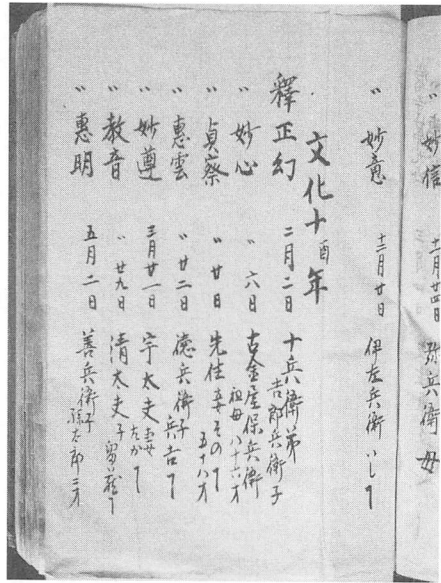 〃妙信 十二月廿四日 弥兵衛母
〃妙意 十二月廿日 伊左兵衛いし丁
文化十酉年
釋正幻 二月二日 十兵衛弟 吉郎兵衛子
〃妙心 〃六日 古金屋保兵衛 祖母八十六才
〃貞察 〃廿日 先住妻その丁 五十八才
〃惠雲 〃廿二日 徳兵衛子 兵吉丁
〃妙遵 三月廿一日 宇太夫妻 たか丁
〃教音 〃廿九日 清太夫子
〃惠明 五月二日 善兵衛子 孫太郎三才